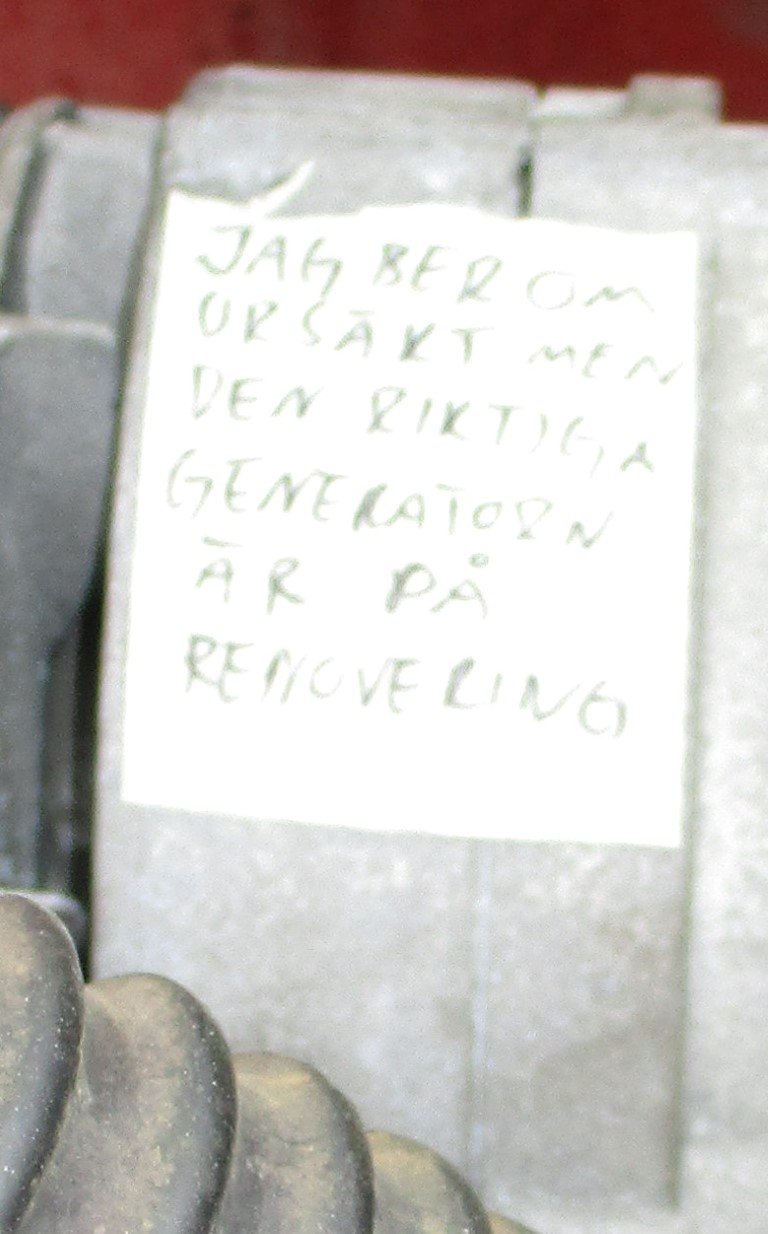 JAG BER OM
URSÄKT MEN
DEN RIKTIGA
GENERATORN
ÄR PÅ
RENOVERING